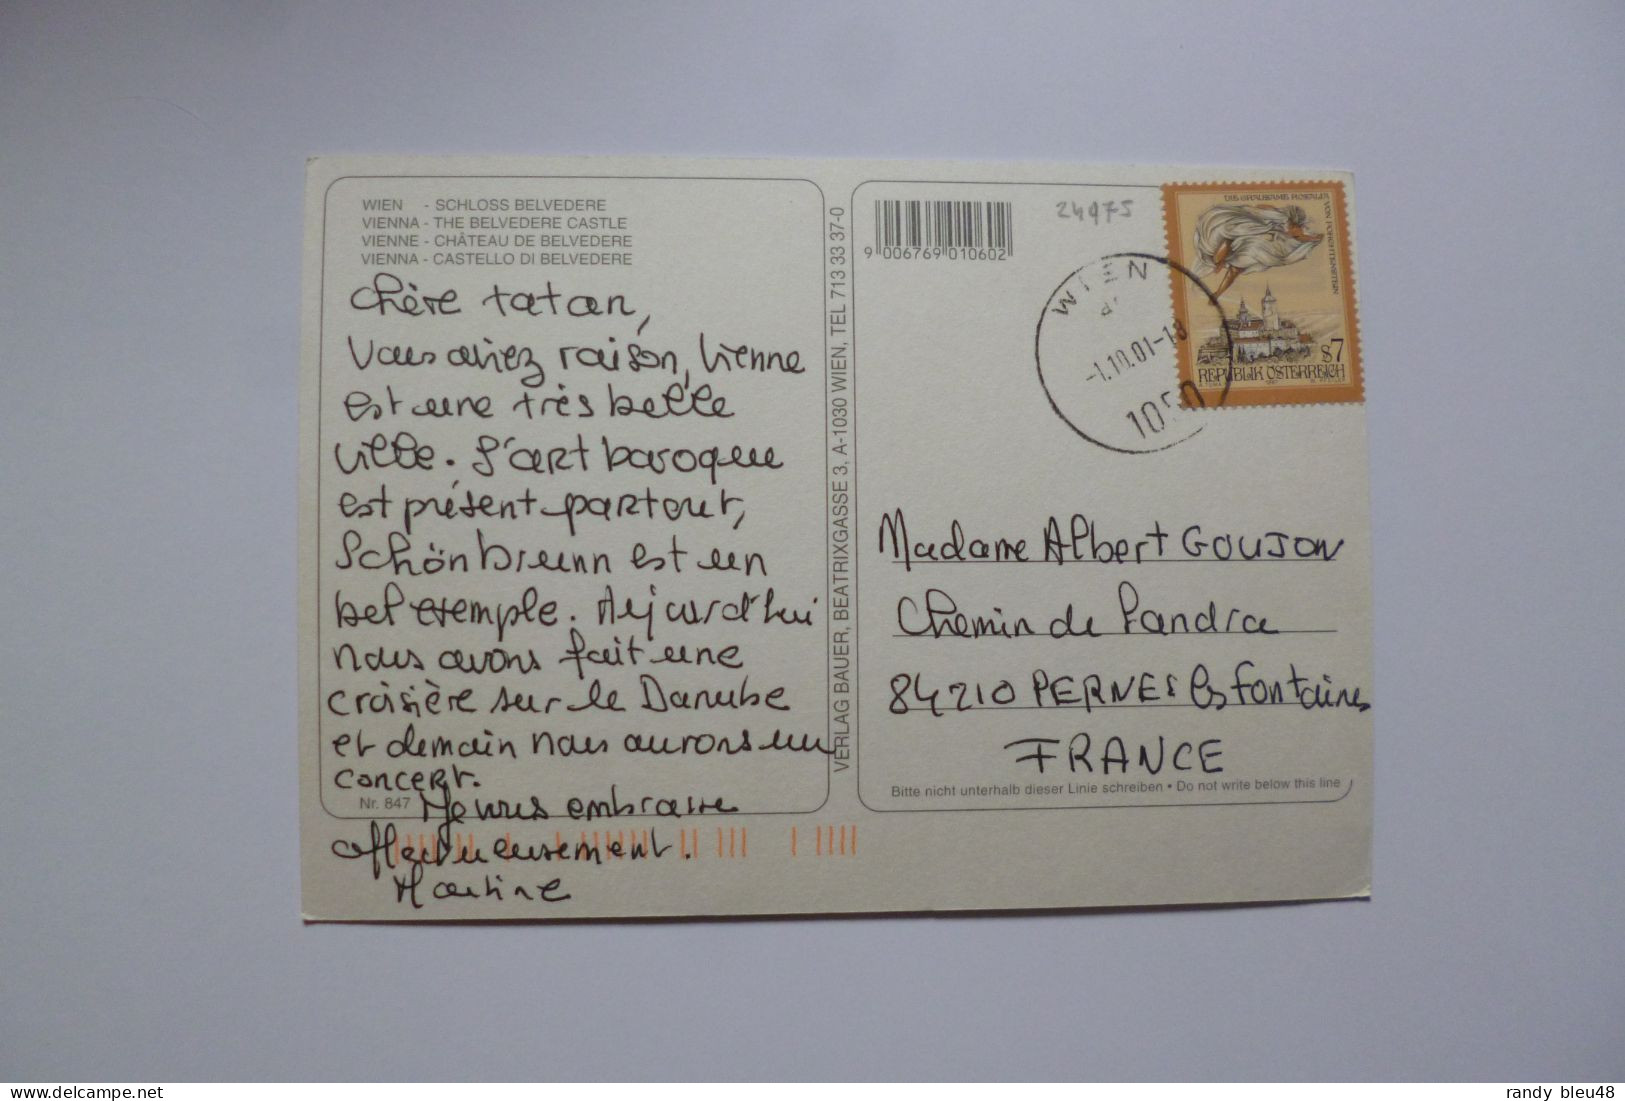 WIEN - SCHLOSS BELVEDERE
VIENNA - THE BELVEDERE CASTLE
VIENNE - CHÂTEAU DE BELVEDERE
VIENNA - CASTELLO DI BELVEDERE
Chère tatan,
Vous aviez raison, Vienne
est une très belle
ville. L'art baroque
est présent partout,
Schönbrunn est un
bel exemple. Aujourd'hui
nous avons fait une
croisière sur le Danube
et demain nous aurons un
concert.
Nr. 847
Je vous embrasse
affectueusement.
Martine
VERLAG BAUER, BEATRIXGASSE 3, A-1030 WIEN, TEL 713 33 37-0
9 006769 010602
24975
WIEN
-1.10.01-18
1050
DIE GRAUSAME ROSALIA VON FORCHTENSTEIN
S7
REPUBLIK ÖSTERREICH
Madame Albert GOUJON
Chemin de Landra
84210 PERNES les Fontaines
FRANCE
Bitte nicht unterhalb dieser Linie schreiben • Do not write below this line
randy_bleu48